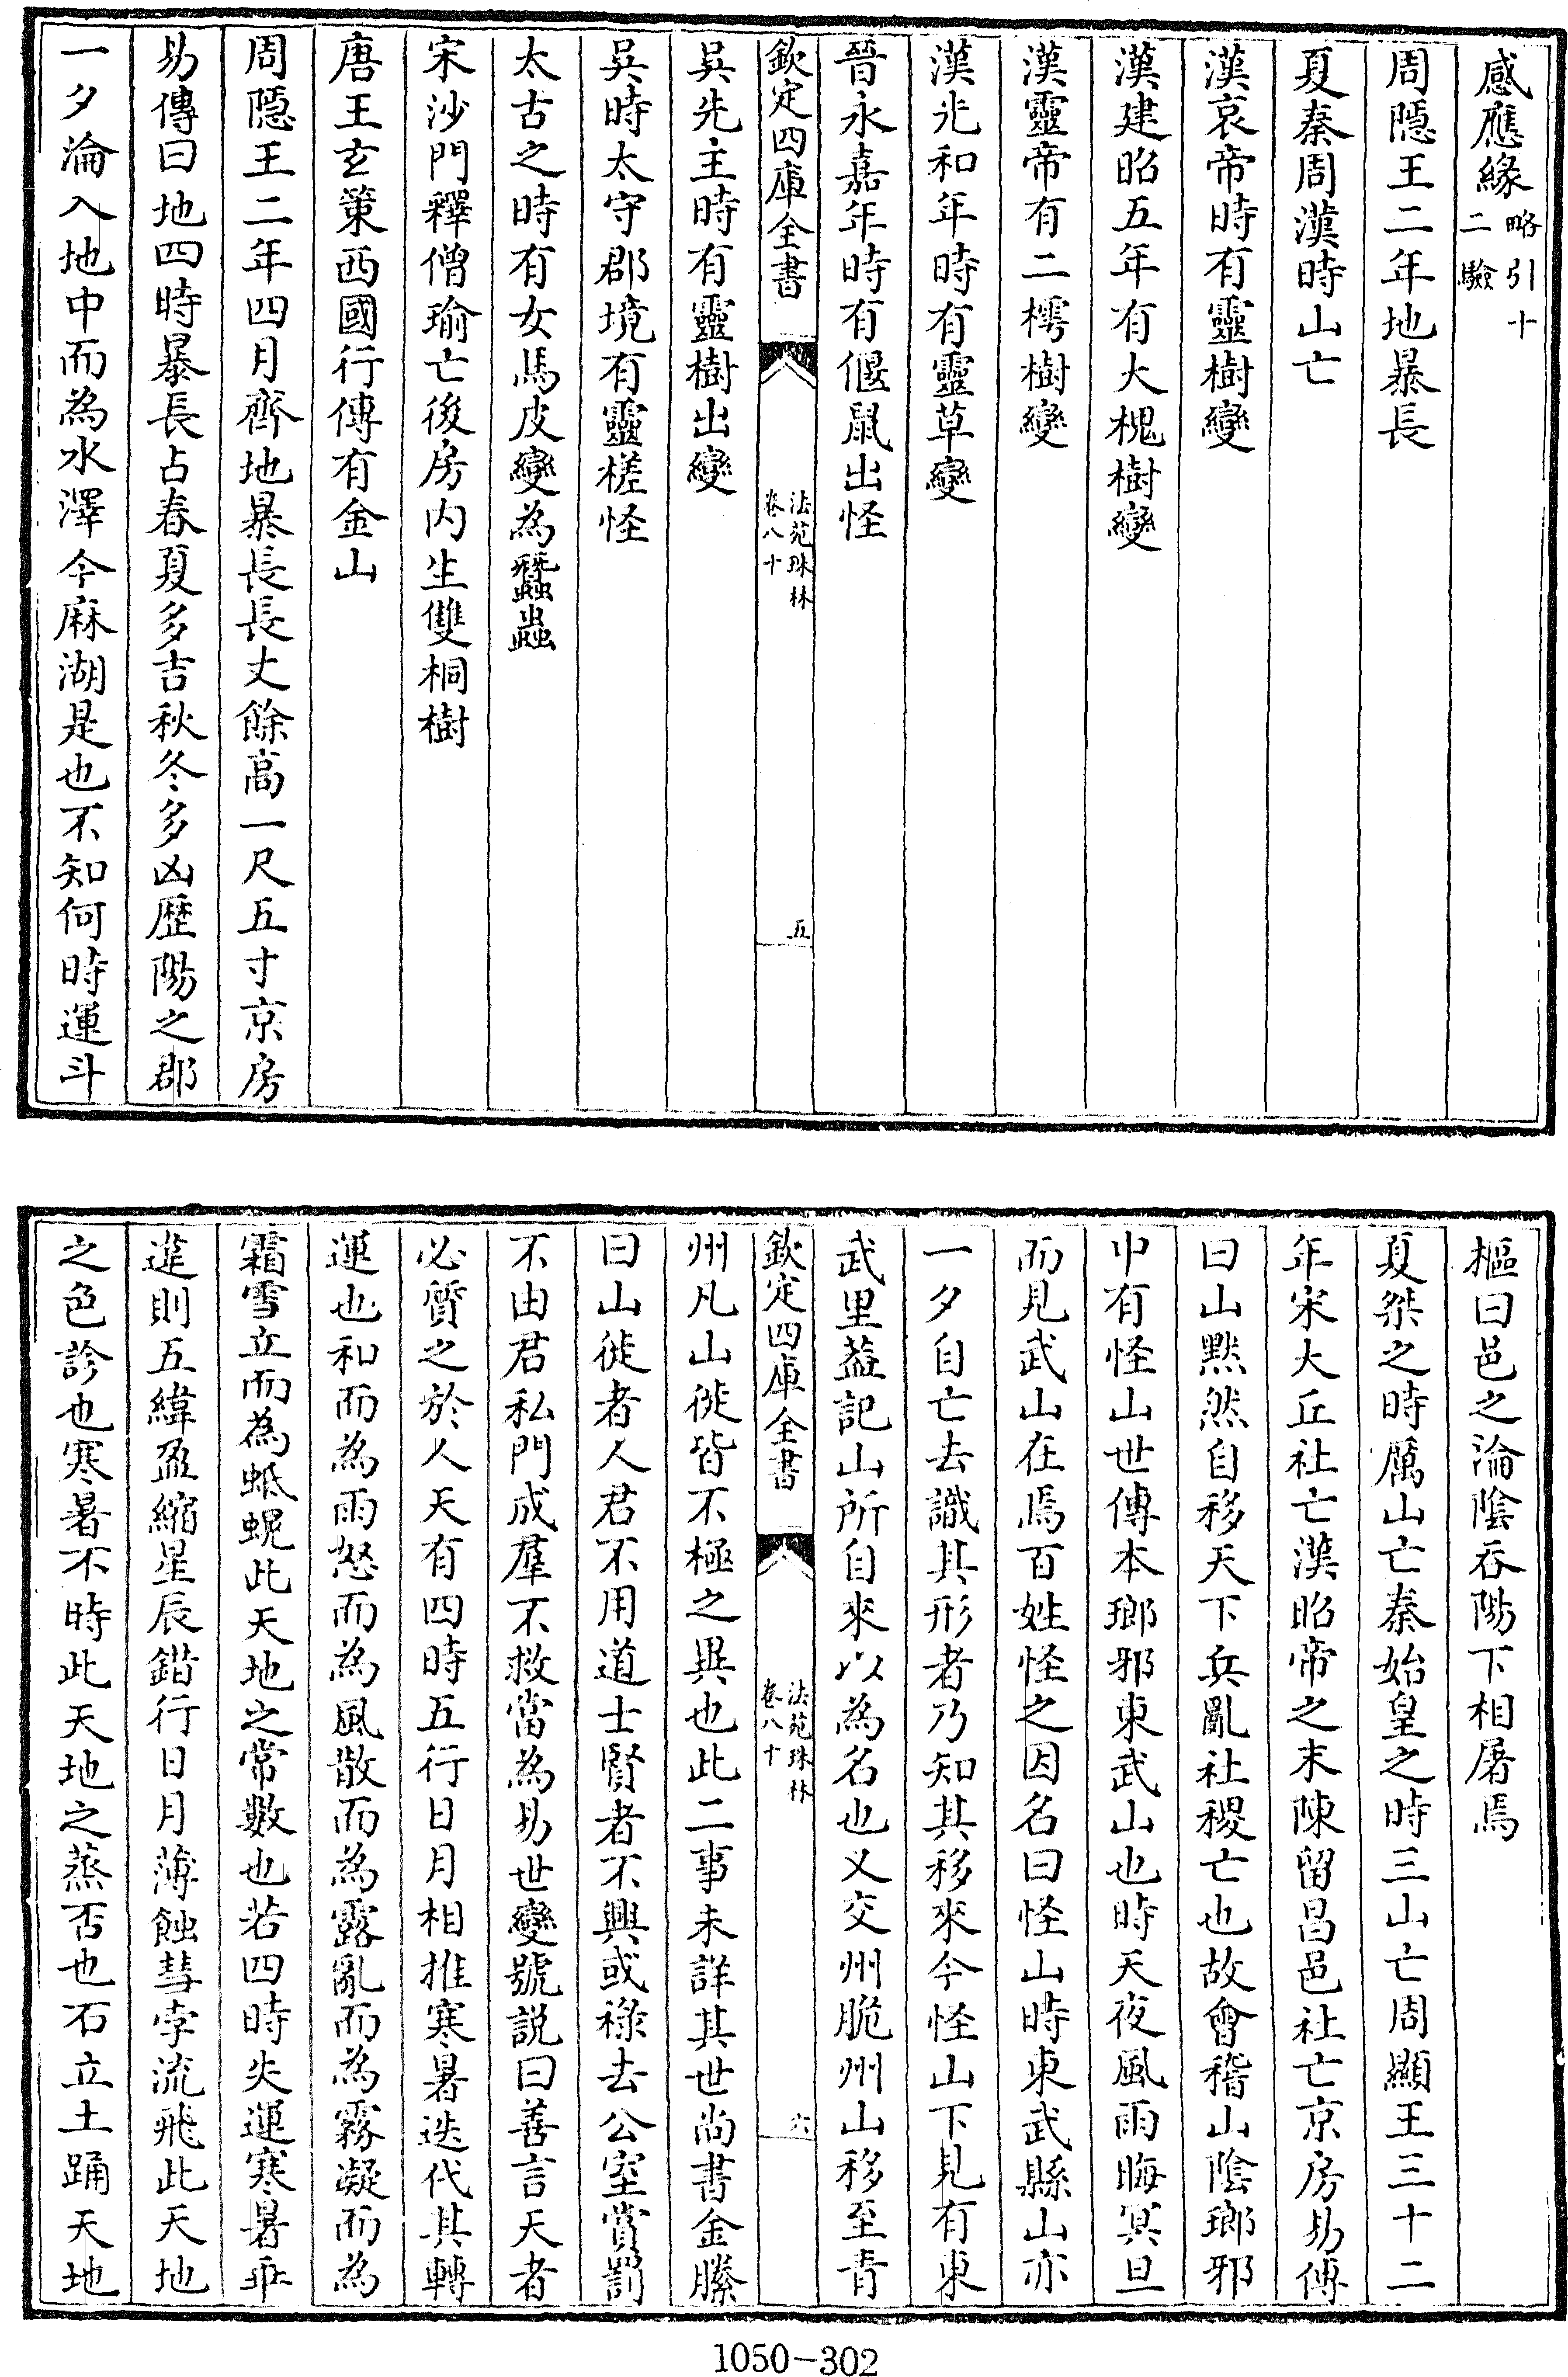 感應緣略引十二驗
周隱王二年地暴長
夏秦周漢時山亡
漢哀帝時有靈樹變
漢建昭五年有大槐樹變
漢靈帝有二樗樹變
漢光和年時有靈草變
晉永嘉年時有偃鼠出怪
欽定四庫全書
法苑珠林
卷八十
五
吳先主時有靈樹出變
吳時太守郡境有靈槎怪
太古之時有女馬皮變為蠶蟲
宋沙門釋僧瑜亡後房内生雙桐樹
唐王玄策西國行傳有金山
周隱王二年四月齊地暴長長丈餘高一尺五寸京房
易傳曰地四時暴長占春夏多吉秋冬多凶歷陽之郡
一夕淪入地中而為水澤今麻湖是也不知何時運斗
樞曰邑之淪陰吞陽下相屠焉
夏桀之時厲山亡秦始皇之時三山亡周顯王三十二
年宋大丘社亡漢昭帝之末陳留昌邑社亡京房易傳
曰山黙然自移天下兵亂社稷亡也故會稽山陰瑯邪
中有怪山世傳本瑯邪東武山也時天夜風雨晦冥旦
而見武山在焉百姓怪之因名曰怪山時東武縣山亦
一夕自亡去識其形者乃知其移來今怪山下見有東
武里葢記山所自來以為名也又交州脆州山移至青
欽定四庫全書
法苑珠林
卷八十
六
州凡山徙皆不極之異也此二事未詳其世尚書金縢
曰山徙者人君不用道士賢者不興或祿去公室賞罰
不由君私門成羣不救當為易世變號説曰善言天者
必質之於人天有四時五行日月相推寒暑迭代其轉
運也和而為雨怒而為風散而為露亂而為霧凝而為
霜雪立而為蚳蜺此天地之常數也若四時失運寒暑乖
違則五緯盈縮星辰錯行日月薄蝕彗孛流飛此天地
之色診也寒暑不時此天地之蒸否也石立土踊天地
1050-302